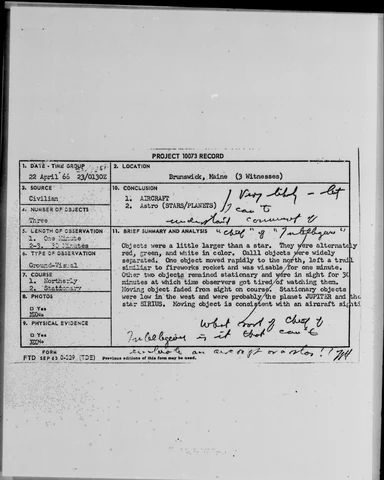 PROJECT 10073 RECORD
1. DATE - TIME GROUP
22 April 66 23/0130Z
2. LOCATION
Brunswick, Maine (3 Witnesses)
3. SOURCE
Civilian
10. CONCLUSION
1. AIRCRAFT
2. Astro (STARS/PLANETS)
Very likely - but
I can't
understand comment of
"Chief of "Intelligence"
4. NUMBER OF OBJECTS
Three
5. LENGTH OF OBSERVATION
1. One Minute
2-3. 30 Minutes
6. TYPE OF OBSERVATION
Ground-Visual
7. COURSE
1. Northerly
2. Stationary
8. PHOTOS
□ Yes
No
9. PHYSICAL EVIDENCE
□ Yes
No
11. BRIEF SUMMARY AND ANALYSIS
Objects were a little larger than a star. They were alternately
red, green, and white in color. Calll objects were widely
separated. One object moved rapidly to the north, left a trail
similiar to fireworks rocket and was visable for one minute.
Other two objects remained stationary and were in sight for 30
minutes at which time observers got tired of watching them.
Moving object faded from sight on course. Stationary objects
were low in the west and were probably the planet JUPITER and the
star SIRIUS. Moving object is consistent with an aircraft sighti
What sort of Chief of
Intelligence is it that can't
evaluate an aircraft or a star!!
FORM
FTD SEP 63 0-329 (TDE) Previous editions of this form may be used.